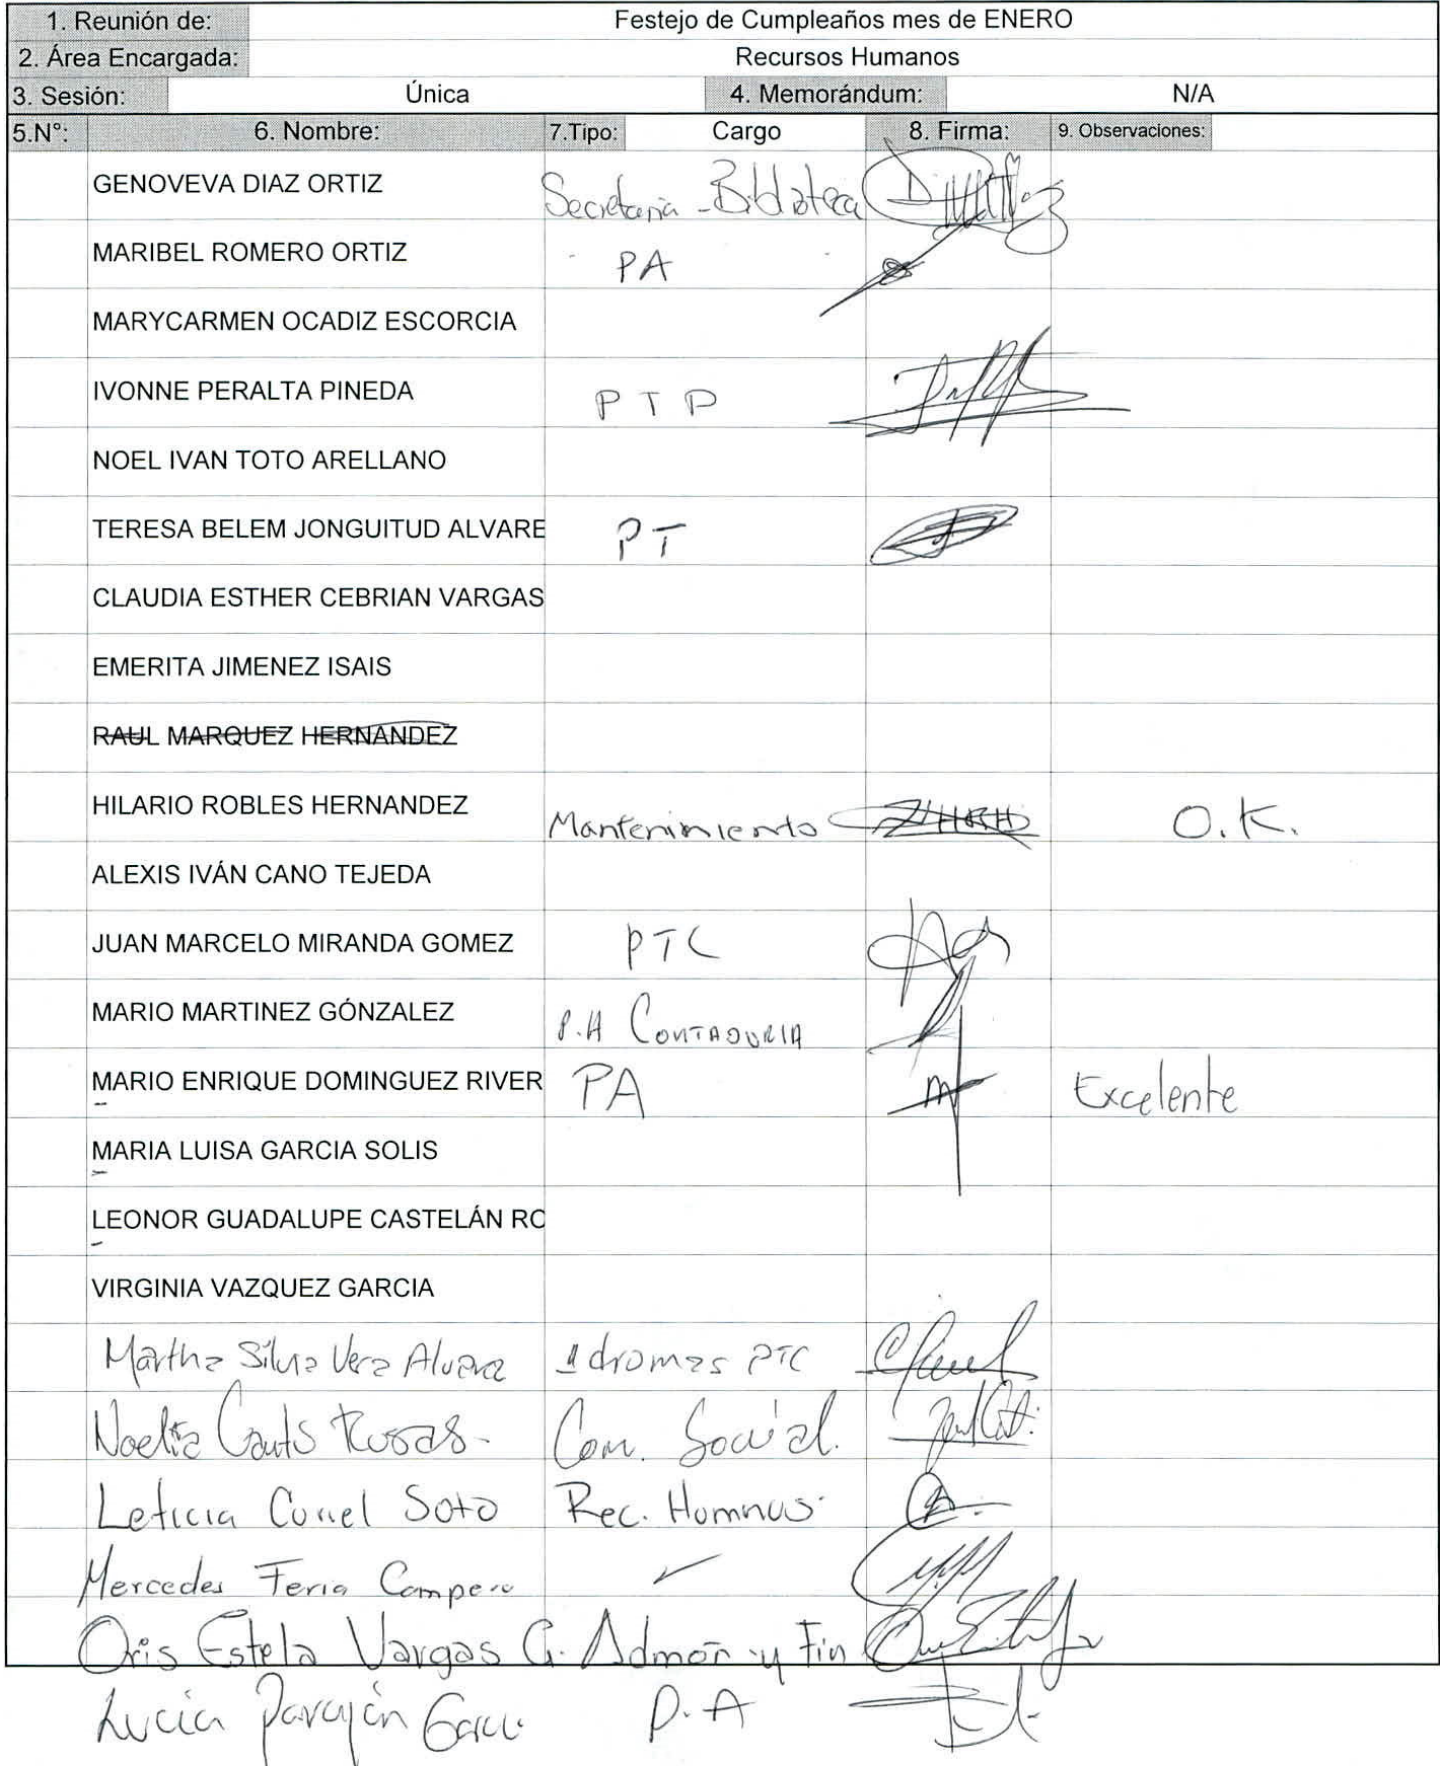 1. Reunión de: Festejo de Cumpleaños mes de ENERO
2. Área Encargada: Recursos Humanos
3. Sesión: Única 4. Memorándum: N/A
5.N°: 6. Nombre: 7.Tipo: Cargo 8. Firma: 9. Observaciones:
GENOVEVA DIAZ ORTIZ Secretaria - Biblioteca
MARIBEL ROMERO ORTIZ PA
MARYCARMEN OCADIZ ESCORCIA
IVONNE PERALTA PINEDA PTP
NOEL IVAN TOTO ARELLANO
TERESA BELEM JONGUITUD ALVARE PT
CLAUDIA ESTHER CEBRIAN VARGAS
EMERITA JIMENEZ ISAIS
RAUL MARQUEZ HERNANDEZ
HILARIO ROBLES HERNANDEZ Mantenimiento O.K.
ALEXIS IVÁN CANO TEJEDA
JUAN MARCELO MIRANDA GOMEZ PTC
MARIO MARTINEZ GÓNZALEZ P.A CONTADURIA
MARIO ENRIQUE DOMINGUEZ RIVER PA Excelente
MARIA LUISA GARCIA SOLIS
LEONOR GUADALUPE CASTELÁN RO
VIRGINIA VAZQUEZ GARCIA
Martha Silvia Vera PTC
Noelia Rosas - Com. Social.
Leticia Curiel Soto Rec. Humnos
Mercedes Feria Campero ✓
Oris Estela Vargas G. Admón y Fin
Lucia P.A